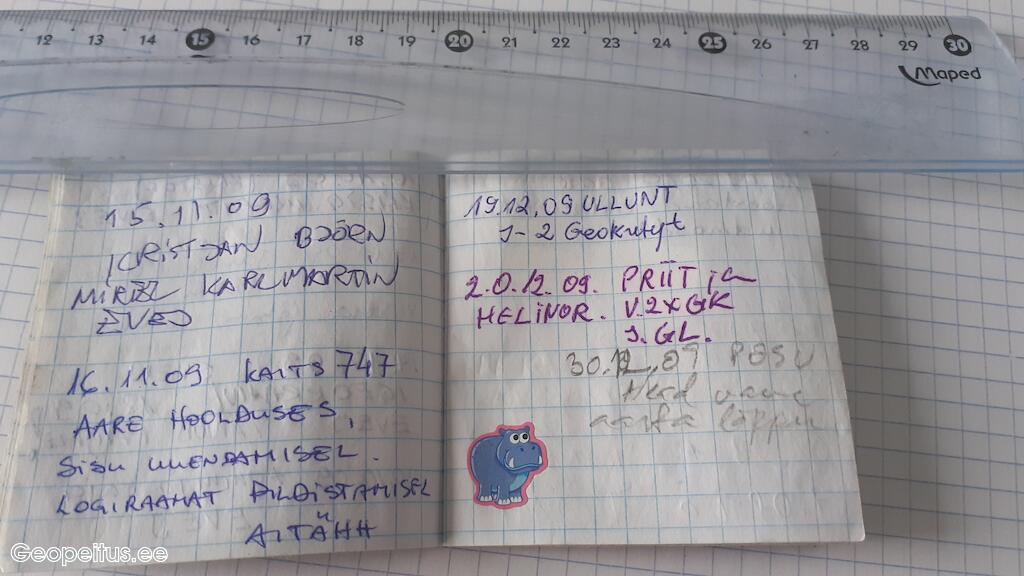 12 13 14 15 16 17 18 19 20 21 22 23 24 25 26 27 28 29 30
Maped
15.11.09
KRISTJAN BJÖRN
KARLMARTIN
16.11.09 KAITS747
AARE HOOLDUSES,
SISU UUENDAMISEL.
LOGIRAAMAT PILDISTAMISEL
AITÄHH
19.12.09 ULLUNT
J-2 Geokrutyt
20.12.09. PRIIT ja
HELINOR. V.2XGK
J.GL.
30.12.09 POSU
Head uue
aasta lõppu
Geopeitus.ee